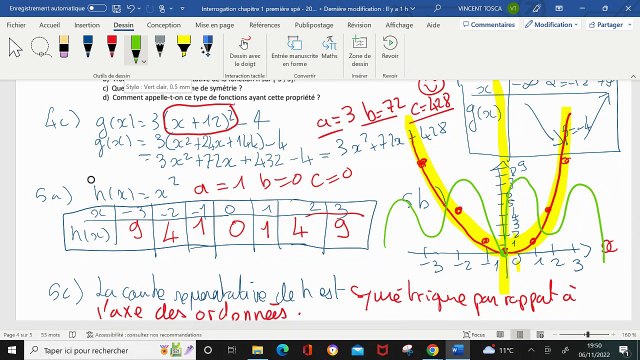 Enregistrement automatique
Interrogation chapitre 1 première spé - 20... • Dernière modification : Il y a 1 h
VINCENT TOSCA VT
Fichier Accueil Insertion Dessin Conception
Commentaires Modification Partager
Dessin avec le doigt
Entrée manuscrite en forme
Entrée manuscrite en math
Zone de dessin
Outils de dessin Interaction tactile Convertir Insérer
c) Que Stylo : Vert clair, 0.5 mm se de symétrie ?
d) Comment appelle-t-on ce type de fonctions ayant cette propriété ?
x -∞ a=-12 +∞
g(x) b=-4
4c) g(x)=3(x+12)²-4
a=3 b=72 c=428
g(x)=3(x²+24x+144)-4
=3x²+72x+432-4=3x²+72x+428
5a) h(x)=x² a=1 b=0 c=0
x -3 -2 -1 0 1 2 3
h(x) 9 4 1 0 1 4 9
5b)
9
8
-3 -2 -1 0 1 2 3
x
5c) La courbe représentative de h est symétrique par rapport à
l'axe des ordonnées.
Page 4 sur 5 53 mots Accessibilité : consultez nos recommandations Focus 160 %
Taper ici pour rechercher
11°C
19:50
06/11/2022